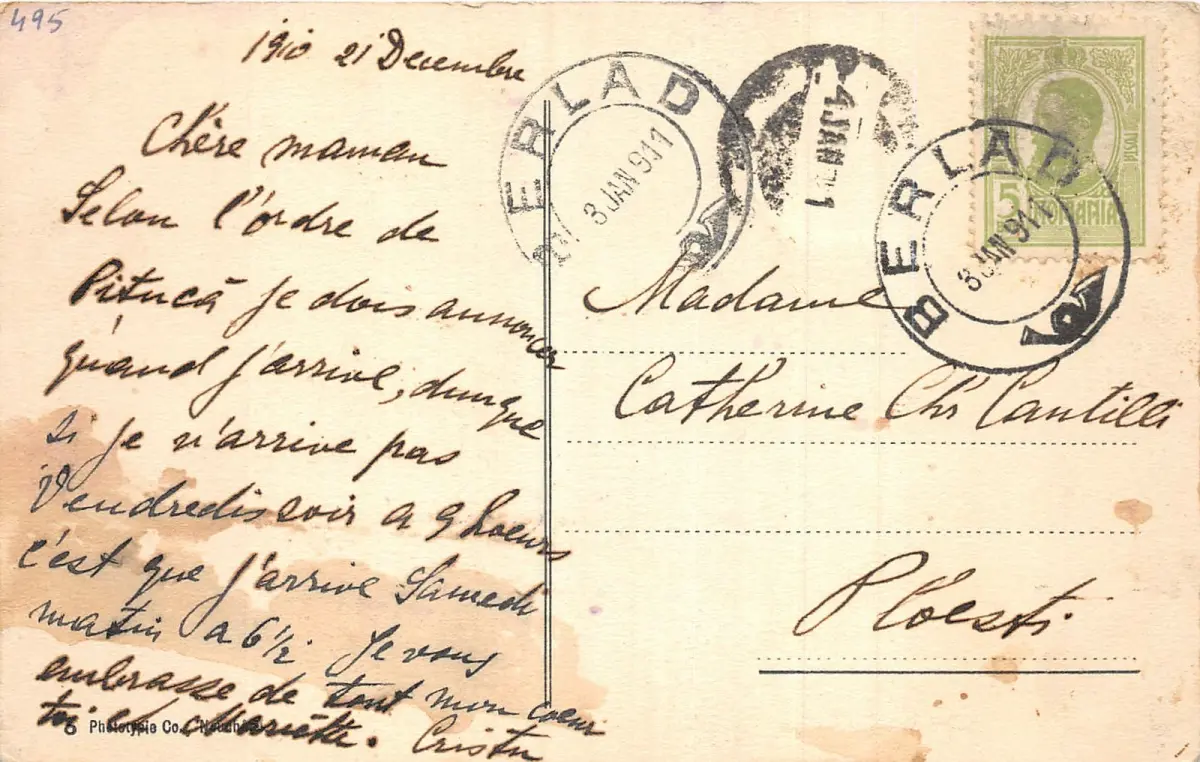 495
1910 21 Decembre
Chère maman
Selon l'ordre de
Pitucă je dois annoncer
quand j'arrive, dunque
si je n'arrive pas
Vendredi soir a 9 hoeurs
c'est que j'arrive Samedi
matin a 6 1/2 Je vous
embrasse de tout mon coeur
toi et Mariette. Cristu
Phototypie Co.
BERLAD
3 JAN 911
4 JAN
BERLAD
3 JAN 911
5
ROMANIA
Madame
Catherine Chr Cantilli
Ploesti